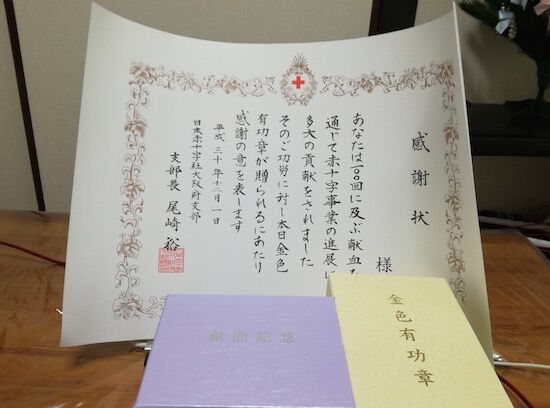 感謝状
様
あなたは一〇〇回に及ぶ献血を
通じて赤十字事業の進展に
多大の貢献をされました
そのご功労に対し本日金色
有功章が贈られるにあたり
感謝の意を表します
平成三十年十二月一日
日本赤十字社大阪府支部
支部長 尾崎 裕
献血記念
金色有功章